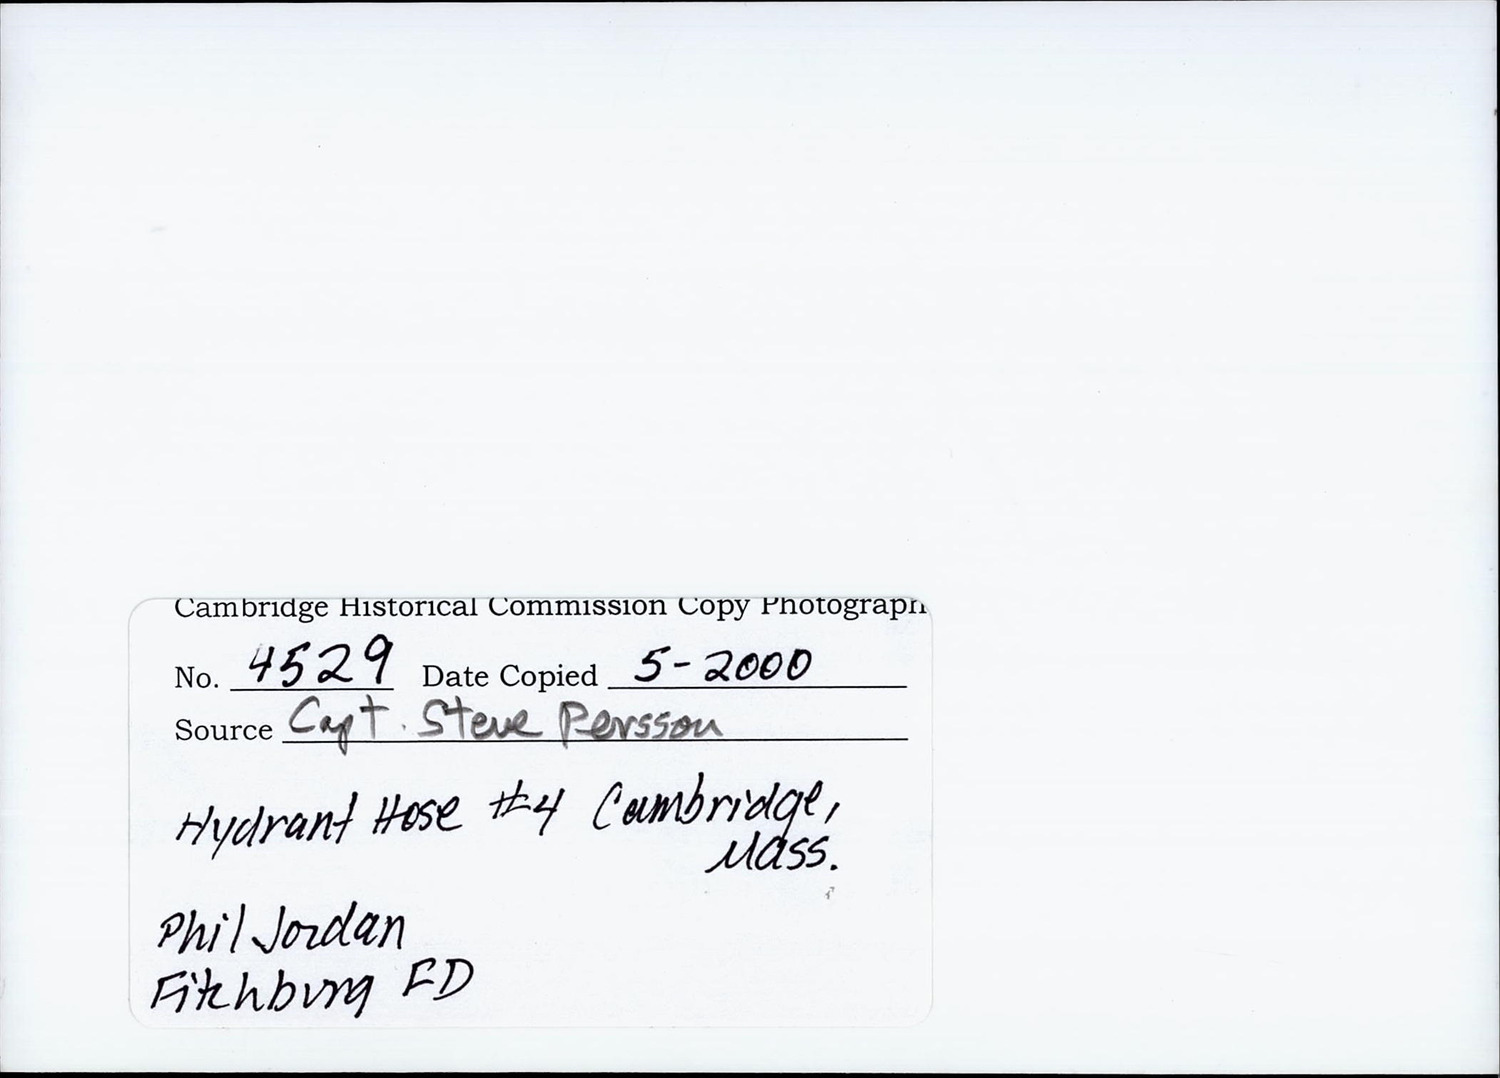 Cambridge Historical Commission Copy Photograph
No. 4529 Date Copied 5-2000
Source Capt. Steve Persson
Hydrant Hose #4 Cambridge,
Mass.
Phil Jordan
Fitchburg FD